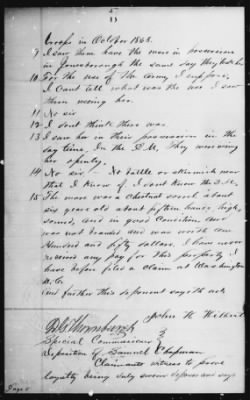 troops in October 1863.
9 I saw them have the mare in possession
in Jonesborough the same day they took her
10 For the use of the Army I suppose,
I cant tell what was the use I saw
them useing her.
11 No sir
12 I dont think there was.
13 I saw her in their possession in the
day time, In the P.M. They were using
her openly.
14 No sir – No battle or skirmish near
that I know of. I dont know the
15 The mare was a chestnut sorrel about
six years old about fifteen hands high,
sound, and in good condition and
was not branded and was worth one
Hundred and fifty dollars. I have never
received any pay for this property I
have before filed a claim at Washington
D.C.
And further this deponent sayeth not.
John H. Wilbert
Thornburgh
Special Commissioner
Deposition of Samuel Chapman
Claimants witness to prove
loyalty being duly sworn deposes and says
Page 5